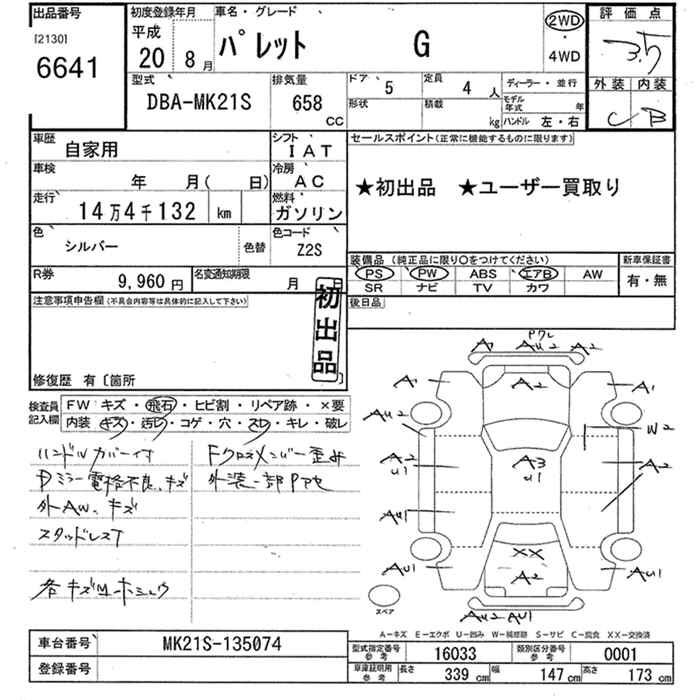 出品番号
[2130]
6641
初度登録年月
平成
20 8月
車名・グレード
パレット G
2WD
・
4WD
評価点
3.5
外装 内装
C B
型式
DBA-MK21S
排気量
658
CC
ドア 5
形状
定員 4 人
積載 kg
ディーラー・並行
モデル年式 年
ハンドル 左・右
車歴
自家用
シフト
IAT
車検
年 月( 日)
冷房
AC
走行
14万4千132 km
燃料
ガソリン
色
シルバー
色替
色コード
Z2S
R券
9,960 円
名変通知期限
月 日
セールスポイント(正常に機能するものに限ります)
★初出品 ★ユーザー買取り
装備品(純正品に限り○をつけてください)
PS PW ABS エアB AW
SR ナビ TV カワ
新車保証書
有・無
後日品
注意事項申告欄(不具合内容等は具体的に記入して下さい)
初出品
修復歴 有〔箇所
検査員記入欄
FW キズ・飛石・ヒビ割・リペア跡・×要
内装 キズ・汚レ・コゲ・穴・スレ・キレ・破レ
ハンドルカバー付
Dミラー電格不良、キズ
外AW、キズ
スタッドレスT
Fクロスメンバー歪み
外装一部
A AU2 A2
A2
A1 A1
AU2
W2
A2
U1
A3
U1
A2
AU1
XX
A2
AU1 AU1
AU2 AU1
スペア
A―キズ E―エクボ U―凹み W―補修跡 S―サビ C―腐食 XX―交換済
車台番号
MK21S-135074
登録番号
型式指定番号
参考
16033
類別区分番号
参考
0001
車庫証明用
参考
長さ 339 cm
幅 147 cm
高さ 173 cm